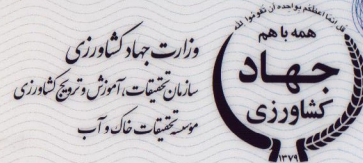 قل انما اعظکم بواحدة ان تقوموا لله
همه با هم
جهاد
کشاورزی
۱۳۷۹
وزارت جهاد کشاورزی
سازمان تحقیقات، آموزش و ترویج کشاورزی
موسسه تحقیقات خاک و آب